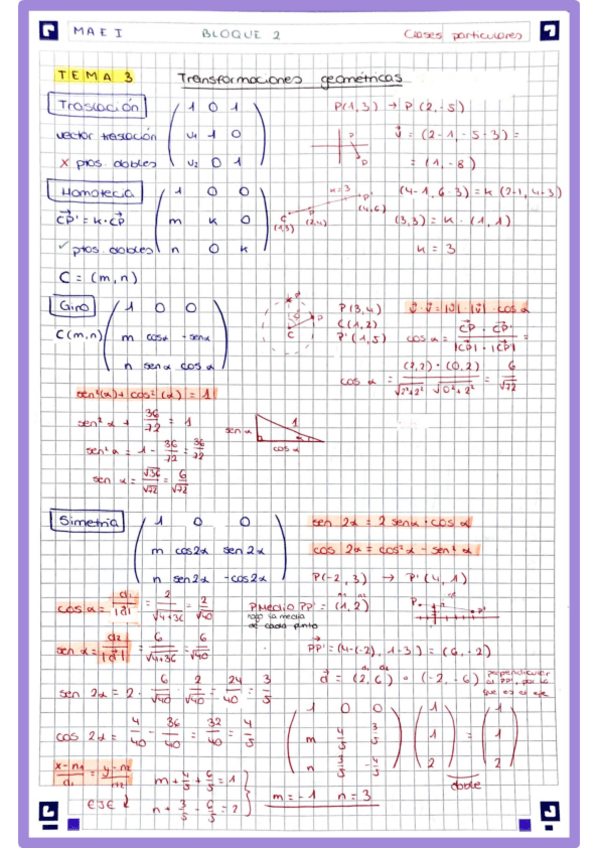 MAE I BLOQUE 2 Clases particulares
TEMA 3 Transformaciones geométricas
Traslación
vector traslación
x ptos. dobles
1 0 1
v₁ 1 0
v₂ 0 1
P(1,3) → P(2,-5)
P
P
v⃗ = (2-1, -5-3) =
= (1, -8)
Homotecia
CP⃗' = k·CP⃗
✓ ptos. dobles
C = (m,n)
1 0 0
m k 0
n 0 k
k=3
C P P'
(1,3) (2,4) (4,6)
(4-1, 6-3) = k (2-1, 4-3)
(3,3) = k · (1,1)
k = 3
Giro
C(m,n)
1 0 0
m cosα -senα
n senα cosα
C
P(3,4)
C(1,2)
P'(1,5)
v⃗ · v⃗ = |v⃗| · |v⃗| · cos α
cos α = CP⃗ · CP⃗' / |CP⃗| · |CP⃗'| =
cos α = (2,2) · (0,2) / √2²+2² √0²+2² = 6/√72
sen²(α) + cos²(α) = 1
sen² α + 36/72 = 1
sen² α = 1 - 36/72 = 36/72
sen α = √36/√72 = 6/√72
sen α
1
α
cos α
Simetría
1 0 0
m cos2α sen2α
n sen2α -cos2α
sen 2α = 2 senα · cos α
cos 2α = cos²α - sen² α
P(-2,3) → P'(4,1)
cos α = d₁/|d⃗| = 2/√4+36 = 2/√40
PMedio PP' = (1,2)
n₁ n₂
hago la media
de cada punto
P
P'
sen α = d₂/|d⃗| = 6/√4+36 = 6/√40
PP⃗' = (4-(-2), 1-3) = (6,-2)
d₁ d₂
d⃗ = (2,6) o (-2,-6)
perpendicular
al PP', por lo
que es el eje
sen 2α = 2 · 6/√40 · 2/√40 = 24/40 = 3/5
cos 2α = 4/40 - 36/40 = 32/40 = 4/5
1 0 0
m 4/5 3/5
n 3/5 -4/5
1
1
2
=
1
1
2
doble
x-n₁/d₁ = y-n₂/n₂
eje
m + 4/5 + 6/5 = 1
n + 3/5 - 6/5 = 2
m = -1 n = 3